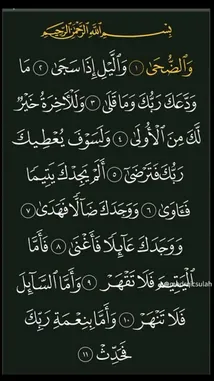 بِسْمِ ٱللَّهِ ٱلرَّحْمَٰنِ ٱلرَّحِيمِ
وَٱلضُّحَىٰ ١ وَٱلَّيْلِ إِذَا سَجَىٰ ٢ مَا
وَدَّعَكَ رَبُّكَ وَمَا قَلَىٰ ٣ وَلَلْأَخِرَةُ خَيْرٌ
لَّكَ مِنَ ٱلْأُولَىٰ ٤ وَلَسَوْفَ يُعْطِيكَ
رَبُّكَ فَتَرْضَىٰٓ ٥ أَلَمْ يَجِدْكَ يَتِيمًا
فَـَٔاوَىٰ ٦ وَوَجَدَكَ ضَآلًّا فَهَدَىٰ ٧
وَوَجَدَكَ عَآئِلًا فَأَغْنَىٰ ٨ فَأَمَّا
ٱلْيَتِيمَ فَلَا تَقْهَرْ ٩ وَأَمَّا ٱلسَّآئِلَ
فَلَا تَنْهَرْ ١٠ وَأَمَّا بِنِعْمَةِ رَبِّكَ
فَحَدِّثْ ١١